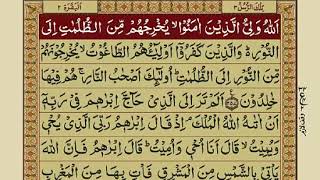 تِلْكَ الرُّسُلُ ٣ اَلْبَقَرَة ٢
اَللّٰهُ وَلِیُّ الَّذِیْنَ اٰمَنُوْا ۙ یُخْرِجُهُمْ مِّنَ الظُّلُمٰتِ اِلَی
النُّوْرِ ؕ وَالَّذِیْنَ كَفَرُوْۤا اَوْلِیٰٓـُٔهُمُ الطَّاغُوْتُ ۙ یُخْرِجُوْنَهُمْ
مِّنَ النُّوْرِ اِلَی الظُّلُمٰتِ ؕ اُولٰٓىِٕكَ اَصْحٰبُ النَّارِ ۚ هُمْ فِیْهَا
خٰلِدُوْنَ اَلَمْ تَرَ اِلَی الَّذِیْ حَآجَّ اِبْرٰهٖمَ فِیْ رَبِّهٖۤ
اَنْ اٰتٰىهُ اللّٰهُ الْمُلْكَ ۘ اِذْ قَالَ اِبْرٰهٖمُ رَبِّیَ الَّذِیْ یُحْیٖ
وَیُمِیْتُ ۙ قَالَ اَنَا اُحْیٖ وَاُمِیْتُ ؕ قَالَ اِبْرٰهٖمُ فَاِنَّ اللّٰهَ
یَاْتِیْ بِالشَّمْسِ مِنَ الْمَشْرِقِ فَاْتِ بِهَا مِنَ الْمَغْرِبِ